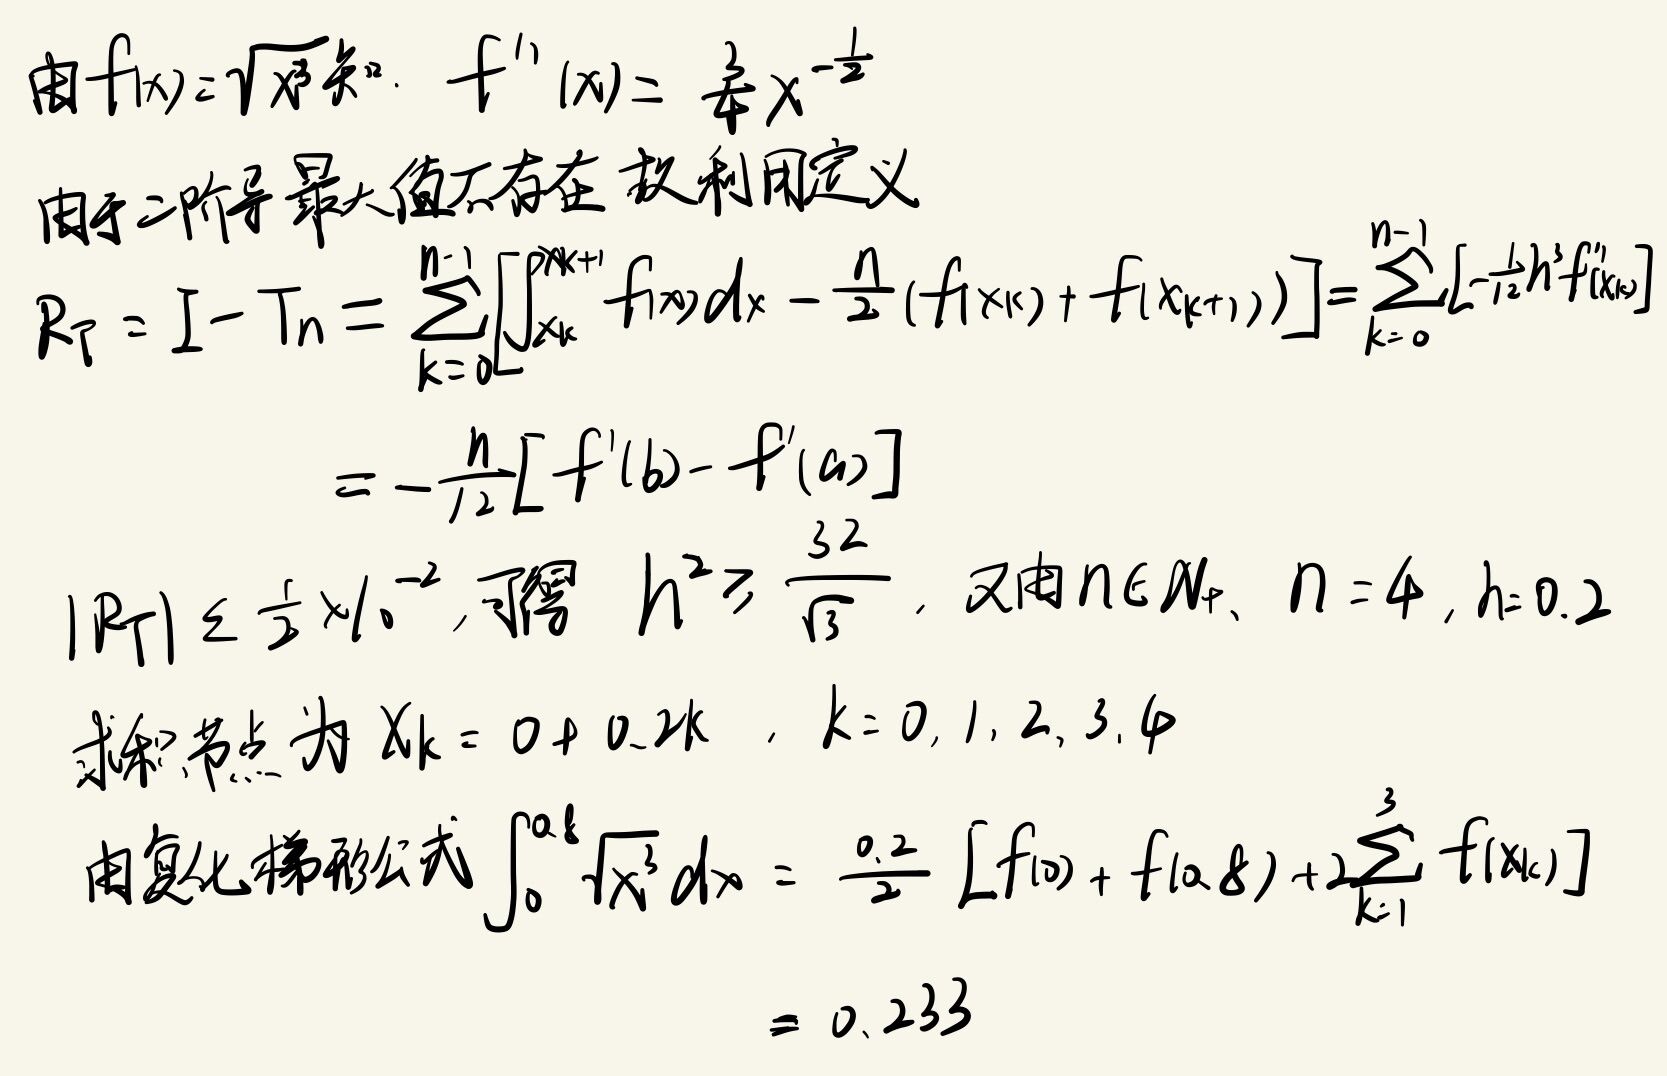 由f(x)=√x³ 知. f''(x)= 3/4 x^(-1/2)
由于二阶导最大值不存在 故利用定义
R_T = I - T_n = ∑_{k=0}^{n-1} [∫_{x_k}^{x_{k+1}} f(x)dx - h/2 (f(x_k)+f(x_{k+1}))] = ∑_{k=0}^{n-1} [-1/12 h³ f''(x_k)]
= - h/12 [f'(b)-f'(a)]
|R_T| ≤ 1/2 ×10^(-2), 可得 h² ≥ 32/√3 , 又由 n∈N₊、 n=4, h=0.2
求积节点为 x_k = 0+0.2k , k=0,1,2,3,4
由复化梯形公式 ∫_0^0.8 √x³ dx = 0.2/2 [f(0)+f(0.8)+2∑_{k=1}^3 f(x_k)]
= 0.233